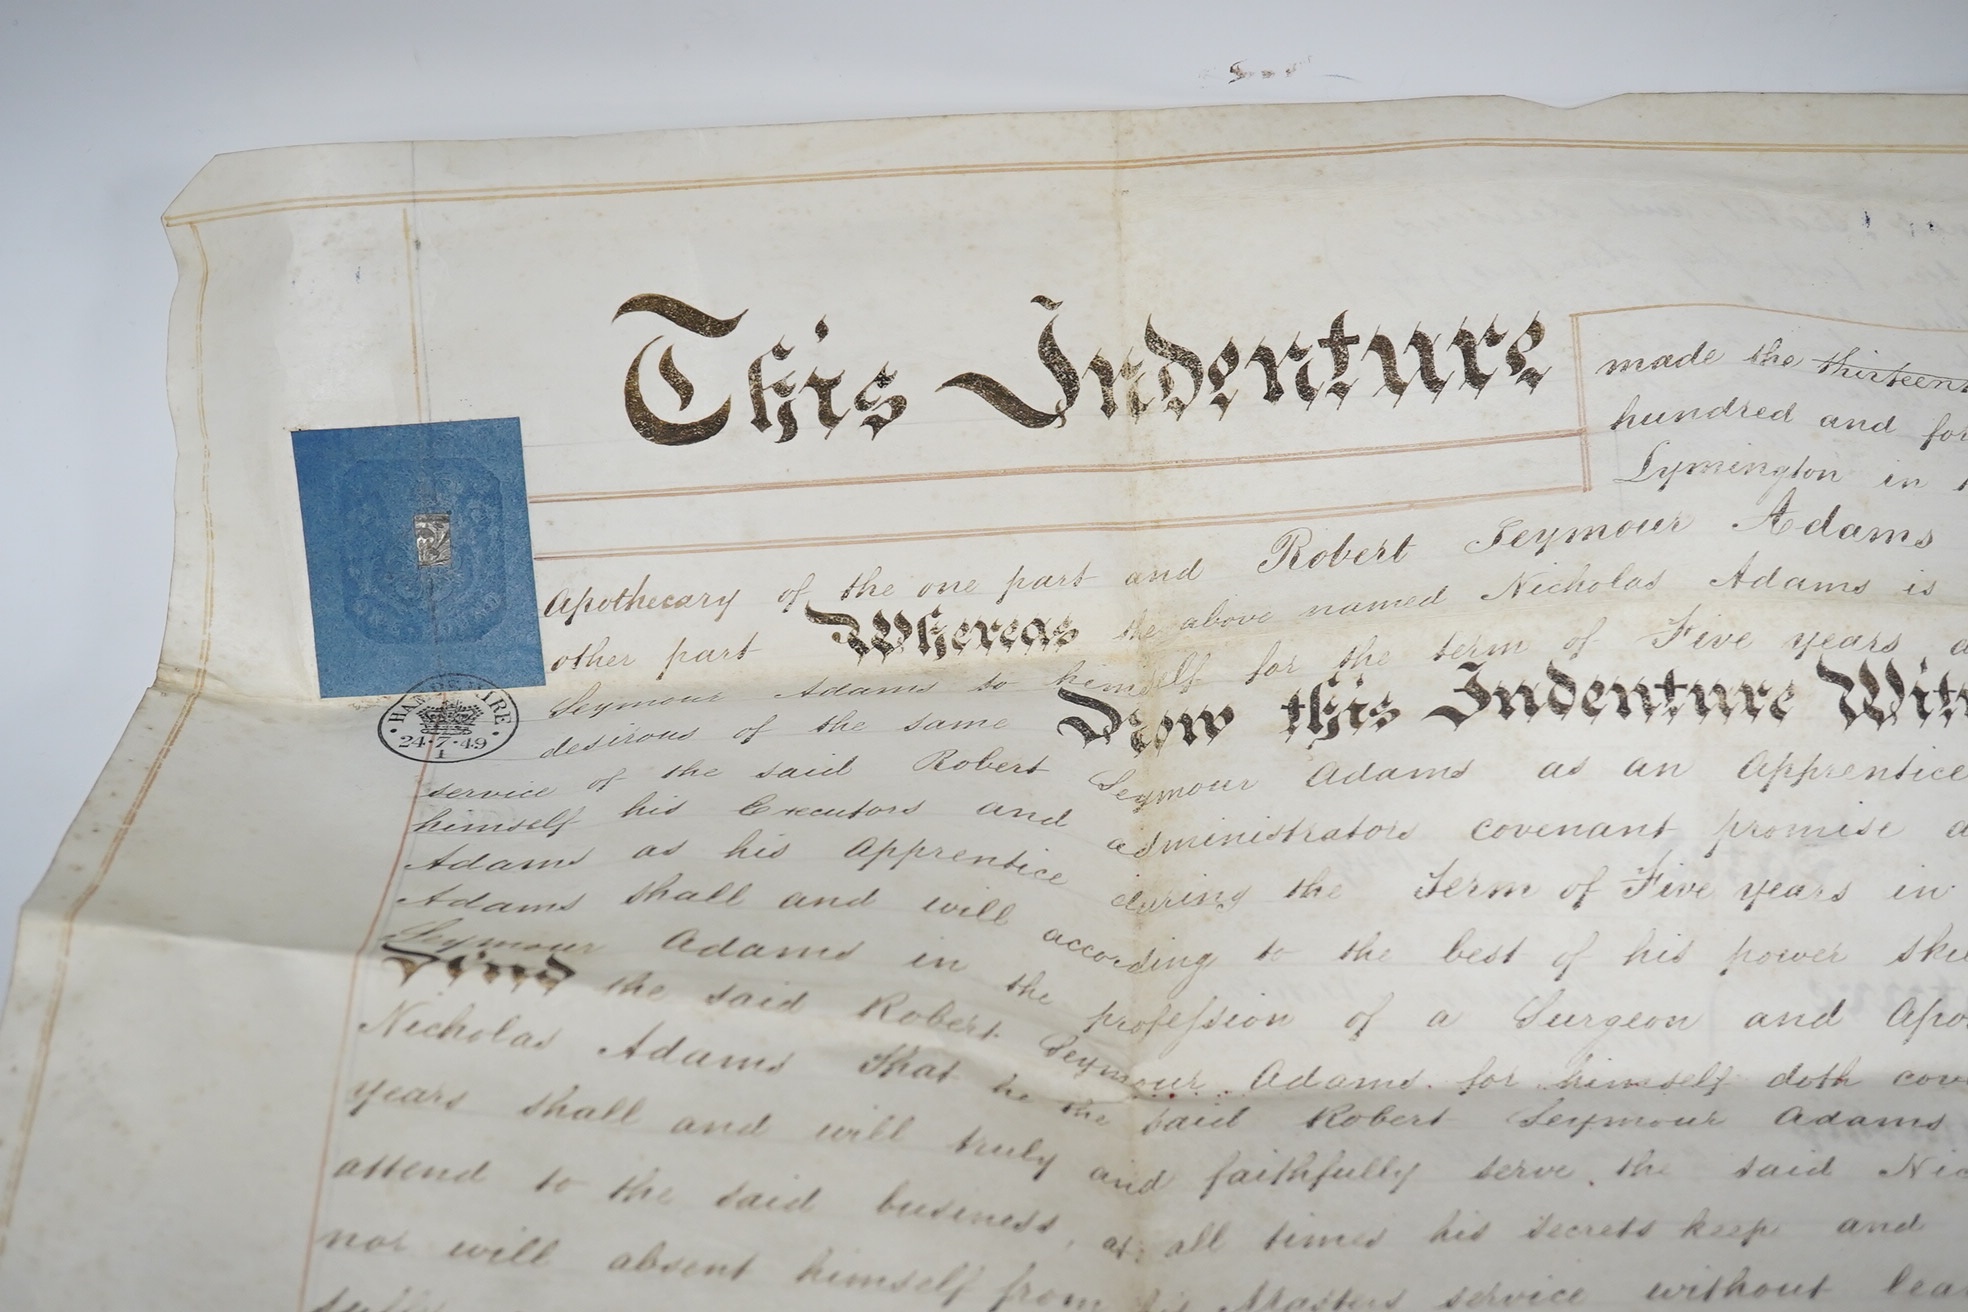 This Indenture
made the thirteent
hundred and for
Lymington in
Apothecary of the one part and Robert Seymour Adams
other part Whereas the above named Nicholas Adams is
Seymour Adams to himself for the term of Five years a
desirous of the same Now this Indenture Witn
service of the said Robert Seymour Adams as an Apprentice
himself his Executors and administrators covenant promise a
Adams as his Apprentice during the Term of Five years in
Adams shall and will according to the best of his power ski
Seymour Adams in the profession of a Surgeon and Apo
And the said Robert Seymour Adams for himself doth cov
Nicholas Adams that he the said Robert Seymour Adams
years shall and will truly and faithfully serve the said Nic
attend to the said business, at all times his secrets keep and
nor will absent himself from his Masters service without lea
HAMPSHIRE
24·7·49
1